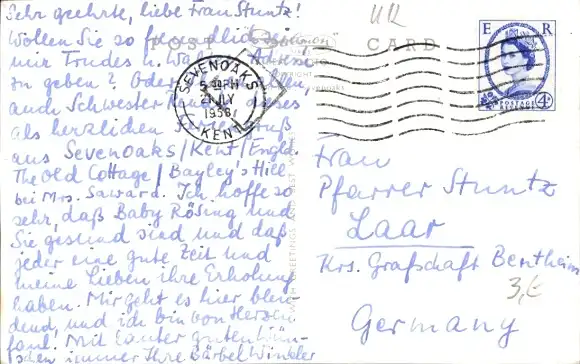 Sehr geehrte, liebe Frau Stuntz!
Wollen Sie so freundlich sein
mir Trudes u. Adresse
zu geben? Oder
auch Schwester dieses
als herzlichen gruß
aus Sevenoaks/Kent/Engld.
The old Cottage/Bayley's Hill
bei Mrs. Saward. Ich hoffe so
sehr, daß Baby Rösing und
Sie gesund sind und daß
jeder eine gute Zeit und
meine Lieben ihre Erholung
haben. Mir geht es hier blen-
dend, und ich bin von Herzen
froh! Mit lauter guten Wün-
schen immer Ihre Bärbel Winkler
POST CARD
SEVENOAKS
KENT
5 PM
JLY
1958
E R
POSTAGE
REVENUE
4D
Frau
Pfarrer Stuntz
Laar
Krs. Grafschaft Bentheim
Germany
3,€